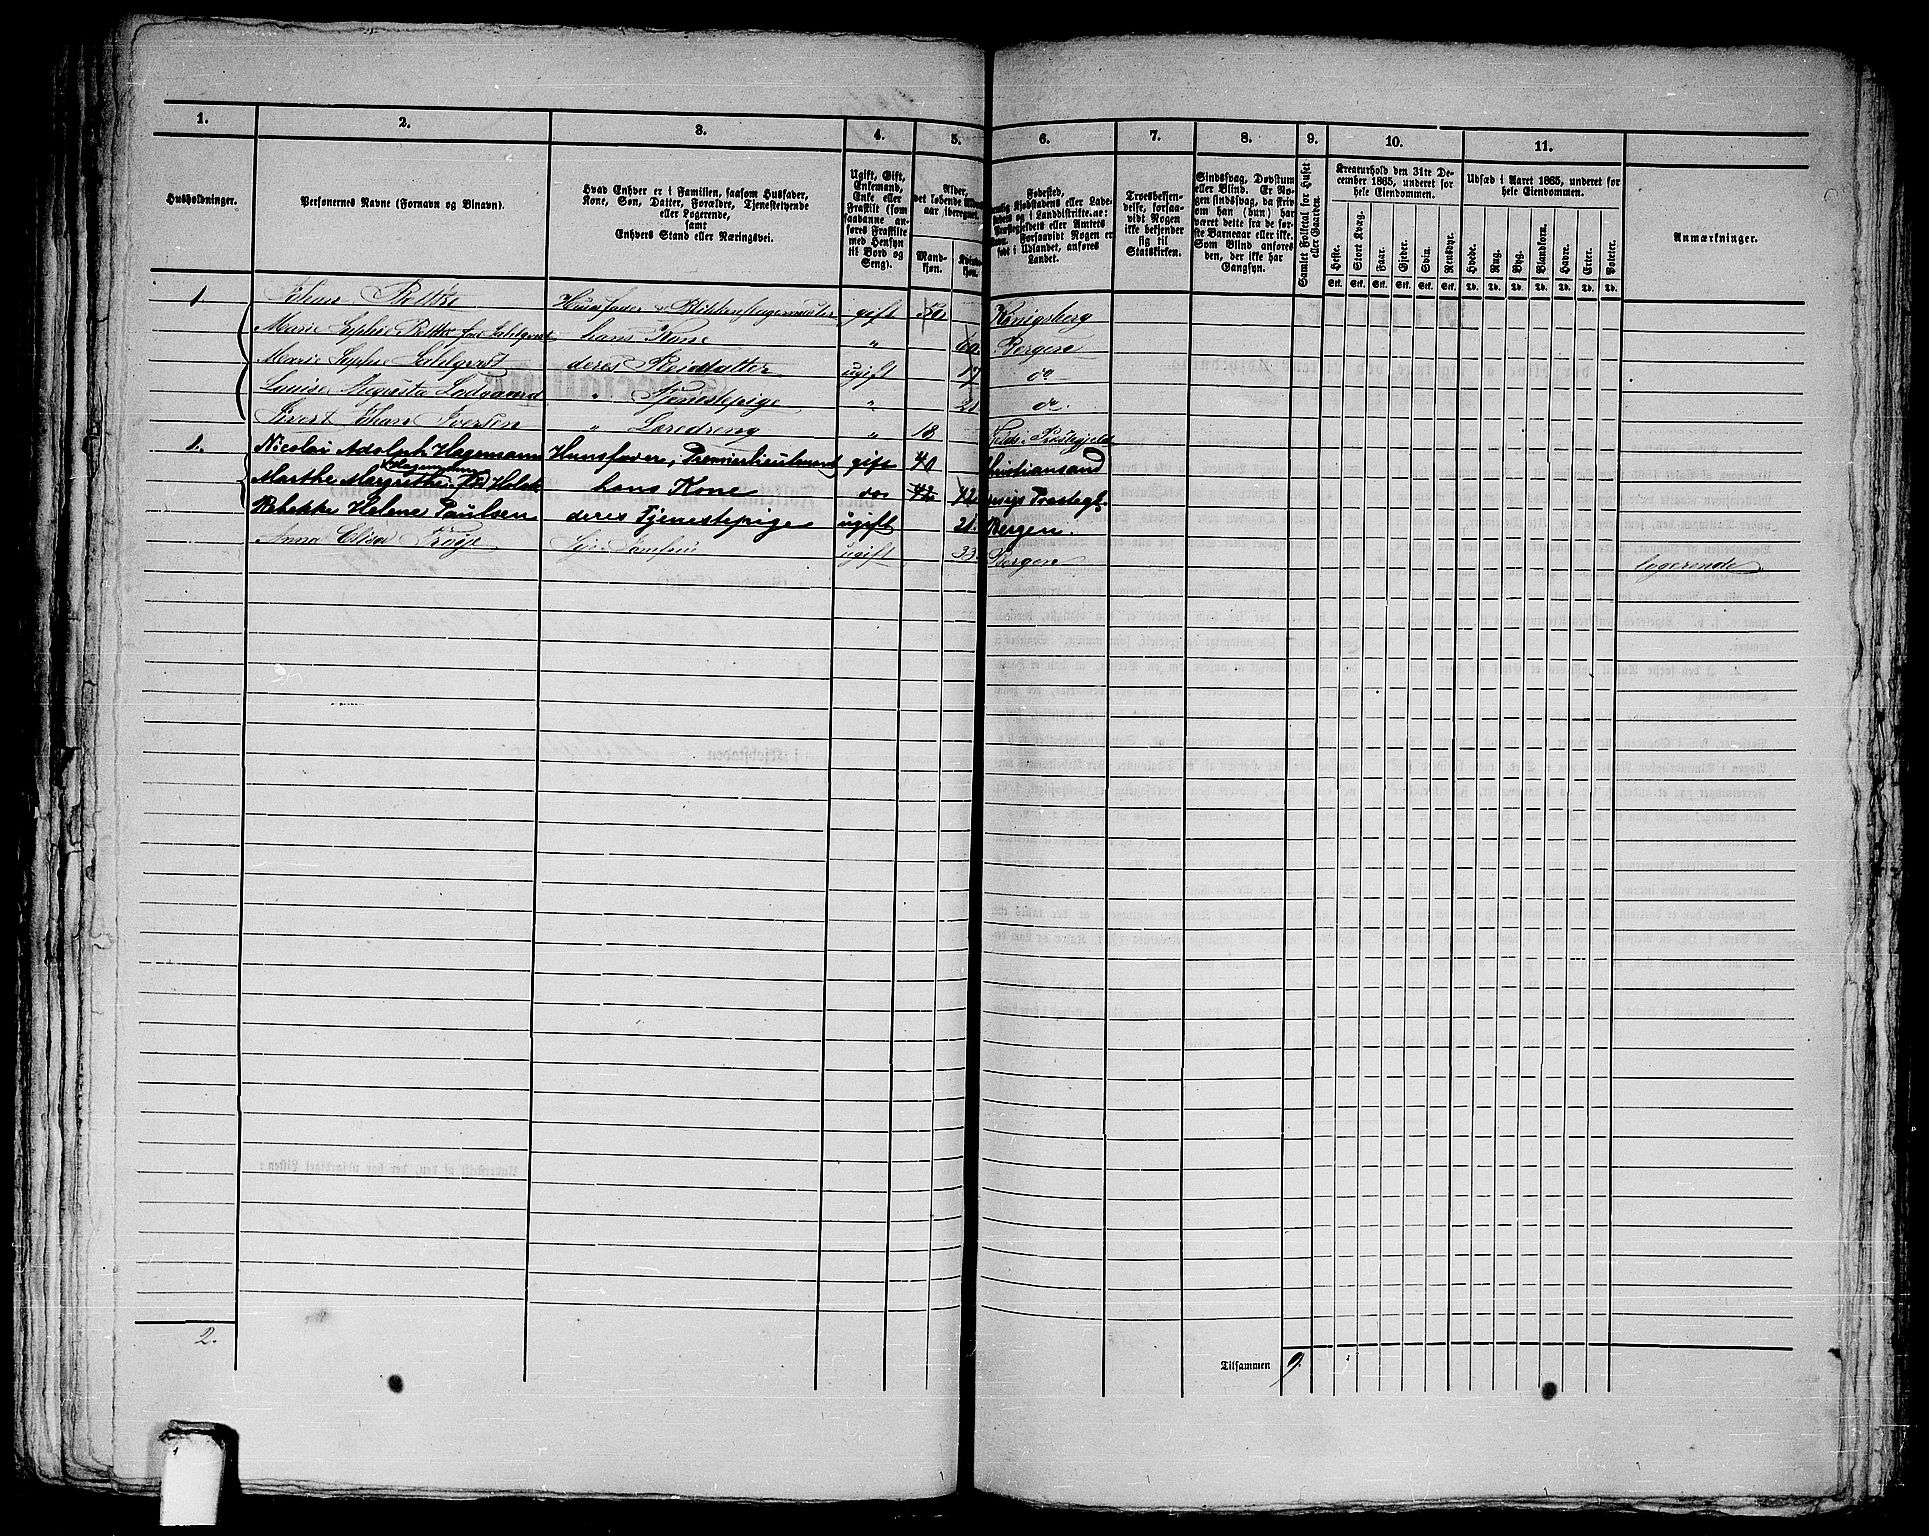 1. 2. 3. 4. 5. 6. 7. 8. 9. 10. 11.
Husholdninger.
Personernes Navne (Fornavn og Binavn).
Hvad Enhver er i Familien, saasom Husfader, Kone, Søn, Datter, Forældre, Tjenestetyende eller Logerende, samt Enhvers Stand eller Næringsvei.
Ugift, Gift, Enkemand, Enke eller Fraskilt (som saadanne anføres Fraskilte med Hensyn til Bord og Seng).
Alder, det løbende Alders aar iberegnet.
Mandkjøn. Kvindekjøn.
Fødested, nemlig Kjøbstadens eller Ladestedets og i Landdistrikterne: Præstegjeldets eller Amtets Navn. Forsaavidt Nogen er født i Udlandet, anføres Landet.
Troesbekjendelse, forsaavidt Nogen ikke bekjender sig til Statskirken.
Sindssvag, Døvstum eller Blind. Er Nogen sindssvag, da skrives om han (hun) har været dette fra de første Barneaar eller ikke. Som Blind anføres den, der ikke har Gangsyn.
Samlet Folketal for Huset eller Gaarden.
Kreaturhold den 31te December 1865, underet for hele Eiendommen.
Heste. Stort Kvæg. Faar. Gjeder. Svin. Rensdyr.
Stk. Stk. Stk. Stk. Stk. Stk.
Udsæd i Aaret 1865, underet for hele Eiendommen.
Hvede. Rug. Byg. Blandkorn. Havre. Erter. Poteter.
Td. Td. Td. Td. Td. Td. Td.
Anmærkninger.
1 Johan Husfader gift 50 Königsberg
Marie Sophie hans Kone " 60 Bergen
Marie Sophie deres Pleiedatter ugift 17 do
Louise Augusta " Tjenestepige " 21 do
Sivert Johan Iversen " Læredreng " 18
1. Nicolai Adolph Hagemann Huusfader, Premierlieutenant gift 40 Christiansand
Marthe Margrethe Hagemann fød Holck hans Kone do 42 42
Rebekke Helene Paulsen deres Tjenestepige ugift 21 Bergen.
Anna Elisa ugift 33 Bergen logerende
2.
Tilsammen 9